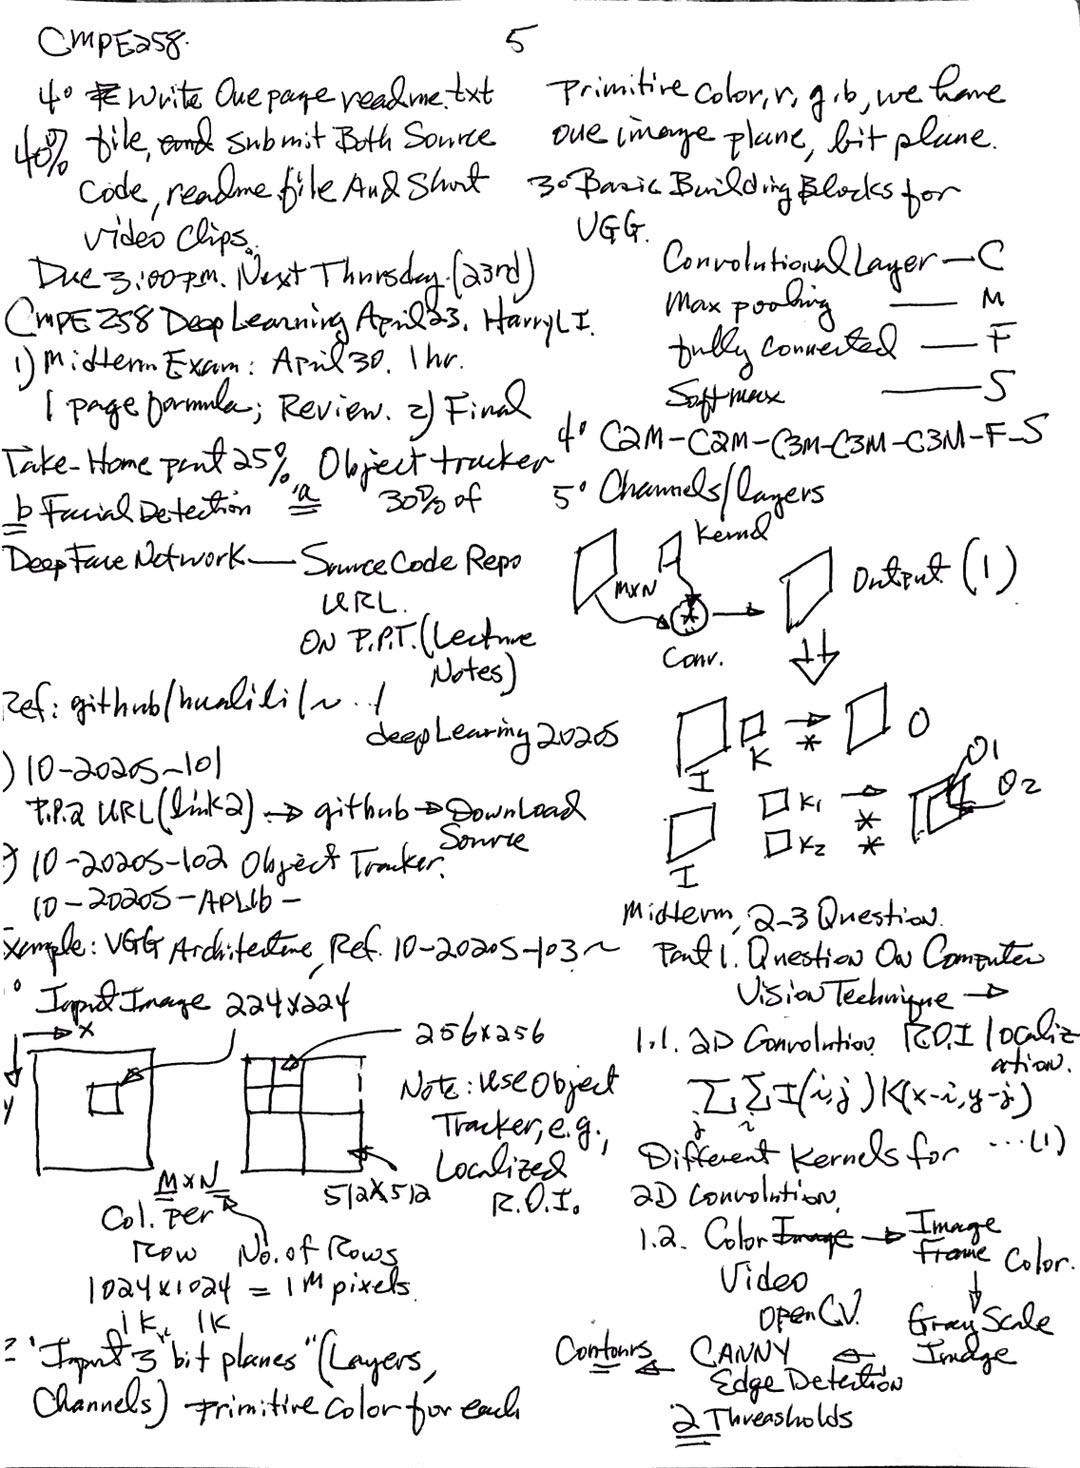 CMPE258.
5
4° Write One page readme.txt
40% file, and submit Both Source
Code, readme file And Short
video Clips.
Due 3:00pm. Next Thursday. (23rd)
CMPE 258 Deep Learning April 23. Harry LI.
1) Midterm Exam: April 30. 1 hr.
1 page formula; Review. 2) Final
Take-Home part 25%. Object tracker
a 30% of
b Facial Detection
Deep Face Network — Source Code Repo
URL.
ON P.P.T. (Lecture
Notes)
Ref: github/hualili/~../
deepLearing 2020S
) 10-2020S-101
P.P.2 URL (link2) → github → DownLoad
Source
) 10-2020S-102 Object Tracker.
10-2020S-APLib-
Example: VGG Architecture, Ref. 10-2020S-103~
° Input Image 224x224
x
y
256x256
Note: Use Object
Tracker, e.g.,
Localized
R.O.I.
512x512
MxN
Col. Per
Row No. of Rows
1024x1024 = 1M pixels.
1K x 1K
2° "Input 3 bit planes" (Layers,
Channels) Primitive Color for each
Primitive Color, r, g, b, we have
one image plane, bit plane.
3° Basic Building Blocks for
VGG.
Convolutional Layer — C
Max pooling — M
fully Connected — F
Softmax — S
4° C2M-C2M-C3M-C3M-C3M-F-S
5° Channels/layers
Kernel
MxN
*
Conv.
Output (1)
I K → * O
O1
O2
I K1 → *
K2 *
Midterm, 2-3 Question.
Part 1. Question On Computer
Vision Technique →
1.1. 2D Convolution. R.O.I localiz-
ation.
Σ Σ I(i,j) K(x-i, y-j)
j i
...(1)
Different Kernels for
2D Convolution.
1.2. Color Image → Image
Video Frame Color.
OpenCV. Gray Scale
Image
Contours ← CANNY ←
Edge Detection
2 Threasholds